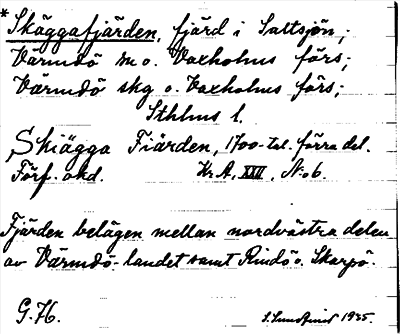 * Skäggafjärden, fjärd i Saltsjön,
Värmdö sn o. Vaxholms förs;
Värmdö skg o. Vaxholms förs;
Sthlms l.
Skiägga Fiärden, 1700-tal. förra del.
Förf. okd. Kr. A, XXII, No 6.
Fjärden belägen mellan nordvästra delen
av Värmdö-landet samt Rindö o. Skarpö.
G. H. 1935.